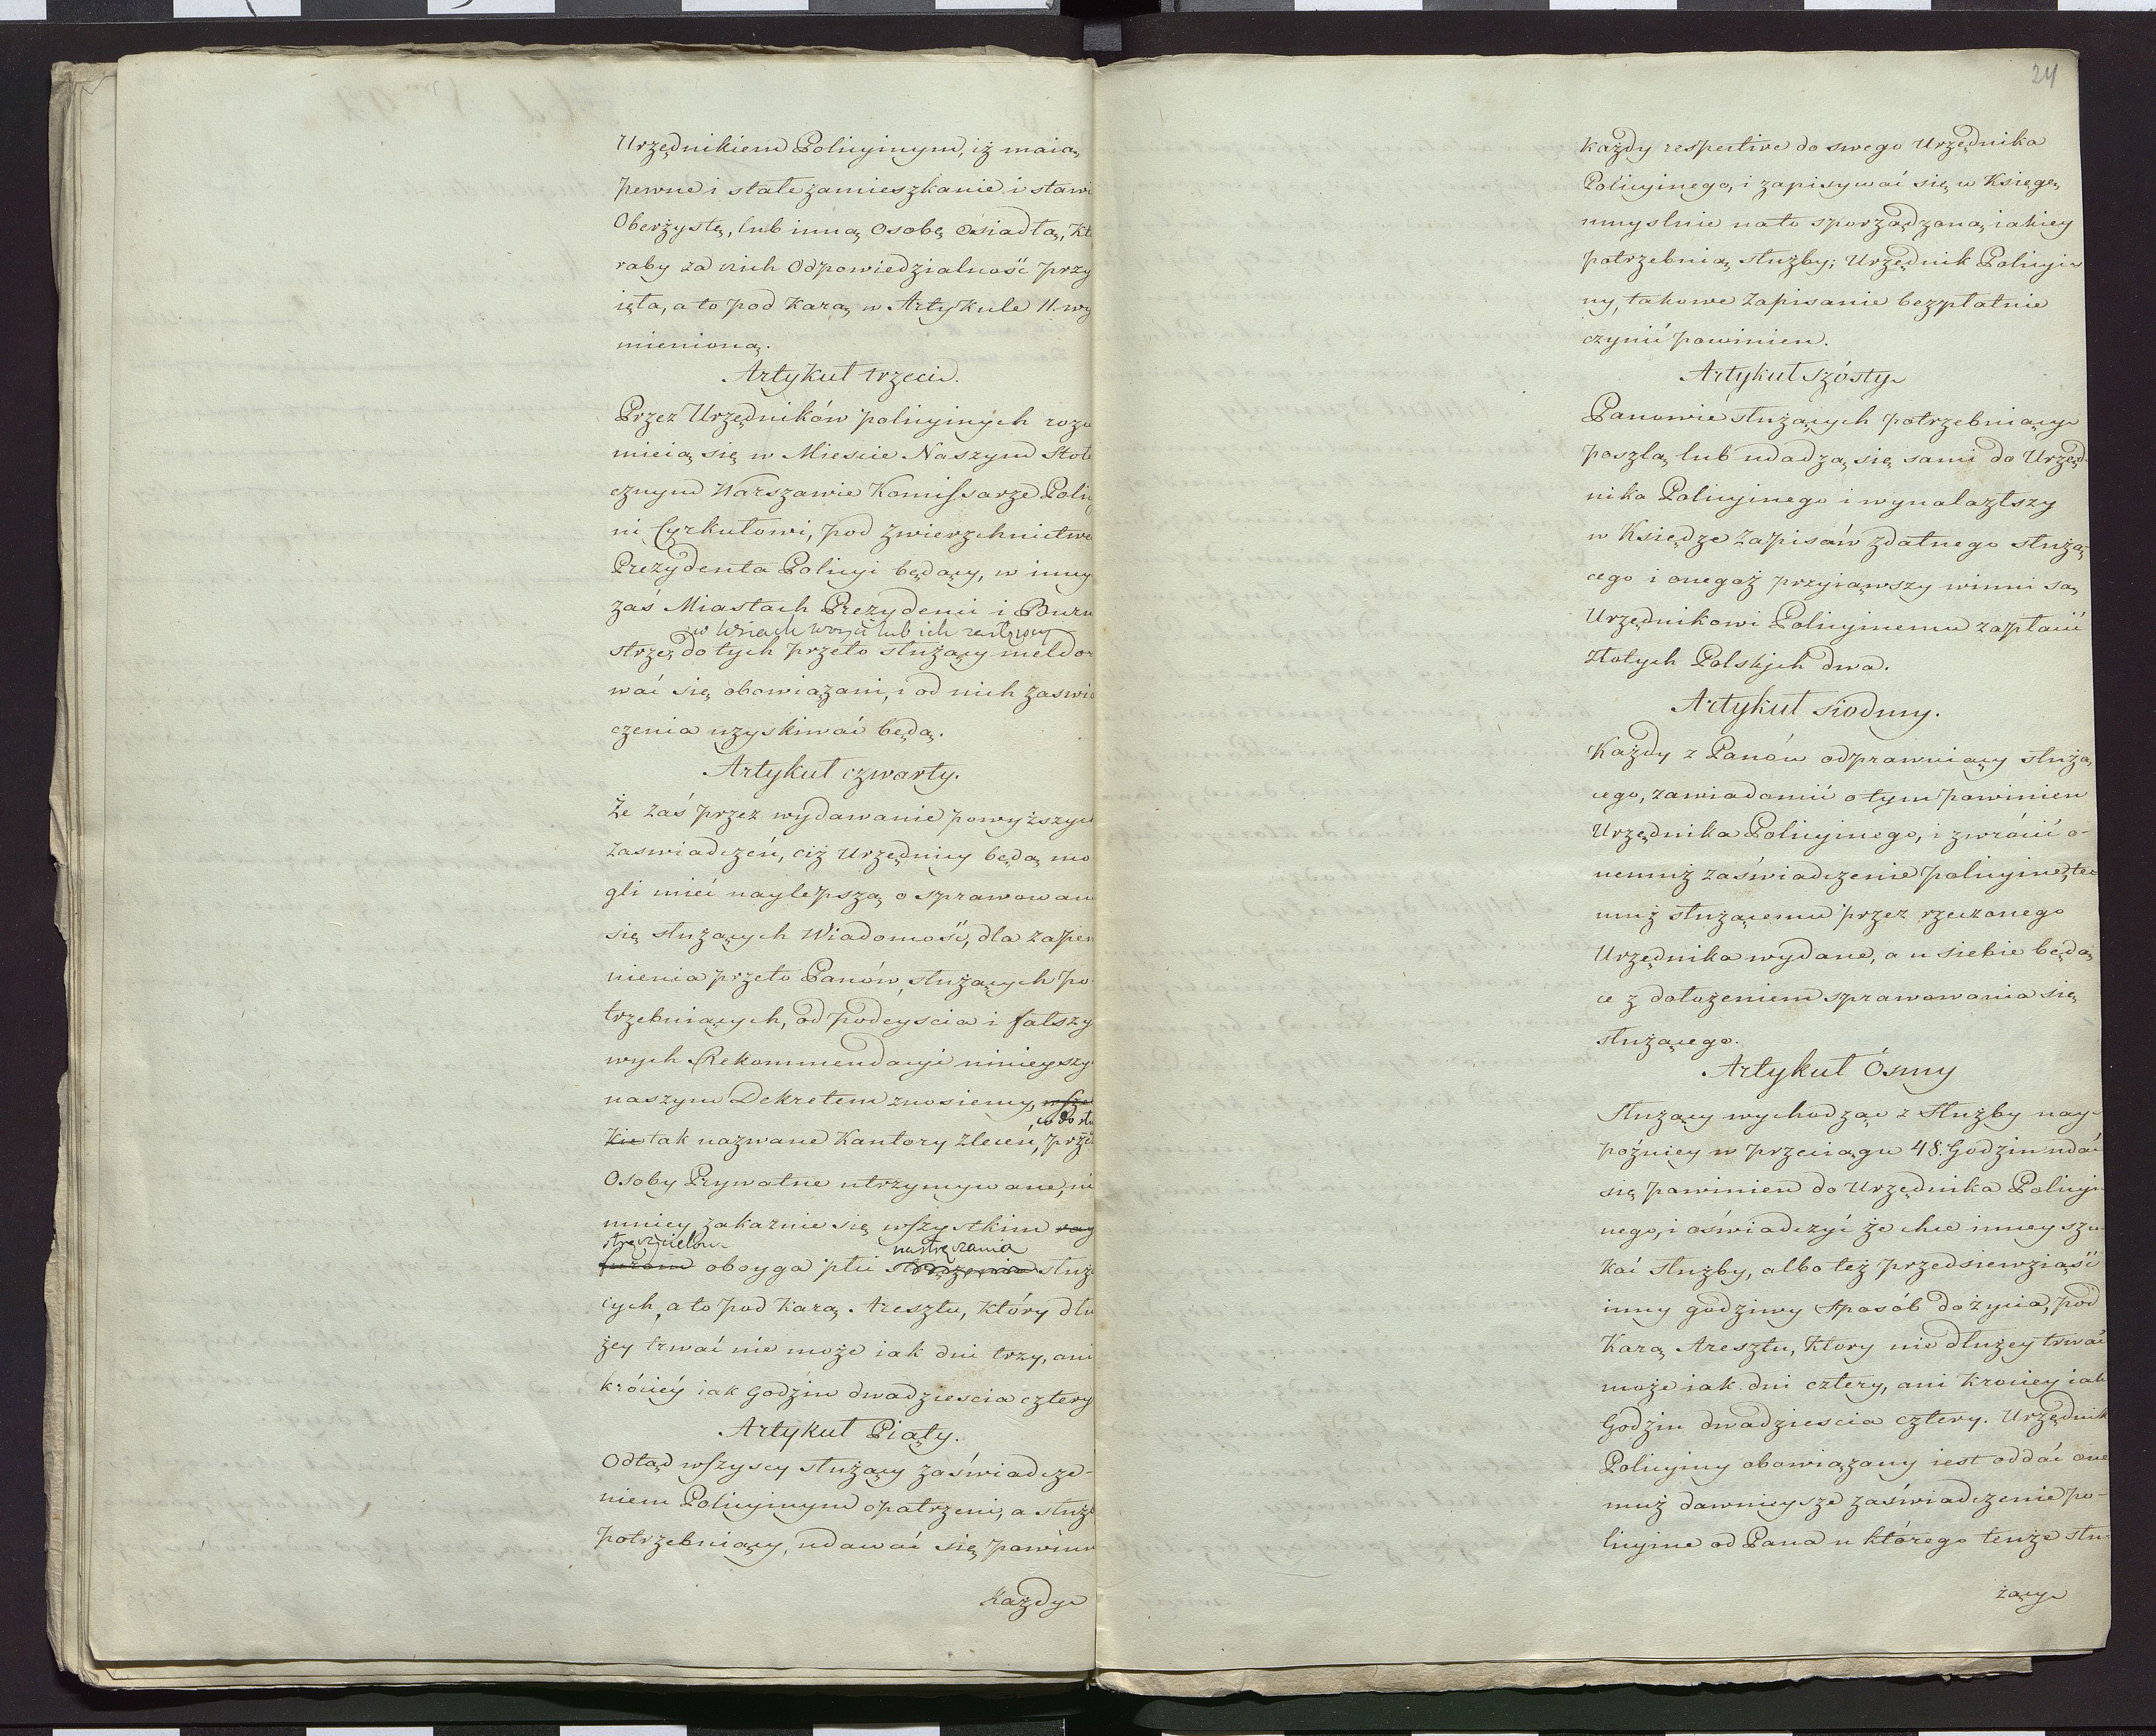 Urzędnikiem Policyinym, iż maią
pewne i stałe zamieszkanie i stawi
Oberżystę, lub inną Osobę Osiadłą, Kt
raby za nich Odpowiedzialność przy
ięła, a to pod Karą w Artykule 11. wy
mienioną.
Artykuł trzeci.
Przez Urzędników policyinych rozu
mieią się w Miescie Naszym Stołe
cznym Warszawie Komissarze Policy
ni Cyrkułowi, pod Zwierzchnictwe
Prezydenta Policyi będący, w inny
zaś Miastach Prezydenci i Burm
w Wsiach Woyci lub ich zastępcy
strze, do tych przeto służący meldo
wać się obowiązani, i od nich zaswia
czenia uzyskiwać będą.
Artykuł czwarty.
Że zaś przez wydawanie powyższych
zaswiadczeń, ciż Urzędnicy będą mo
gli mieć naylepszą o sprawowani
się służących Wiadomość, dla zapew
nienia przeto Panów, służących po
trzebuiących, od podeyscia i fałszy
wych Rekommendacyi ninieyszy
naszym Dekretem znosiemy, wsze
co do słu
kie tak nazwane Kantory zleceń, prze
Osoby Prywatne utrzymywane, ni
mniey zakaznie się wszystkim
stręczycielom nastręczania
oboyga płci stręczenia służ
cych, a to pod Karą Aresztu, który dłu
żey trwać nie może iak dni trzy, ani
króciey iak Godzin dwadziescia cztery
Artykuł Piąty.
Odtąd wszyscy służący zaświadcze-
niem Policyinym opatrzeni, a służą
potrzebuiący, udawać się powinn
Każdy
24
każdy respective do swego Urzędnika
Policyinego, i zapisywać się w Księgę
umyslnie na to sporządzoną, iakiey
potrzebuią służby; Urzędnik Policyi
ny, takowe zapisanie bezpłatnie
czynić powinien.
Artykuł szósty
Panowie służących potrzebuiący
poszlą lub udadzą się sami do Urzęd
nika Policyinego i wynalazłszy
w Księdze Zapisów zdatnego służą-
cego i onegoż przyiąwszy winni są
Urzędnikowi Policyinemu zapłacić
złotych Polskich dwa.
Artykuł siodmy.
Każdy z Panów odprawuiący służą
cego, zawiadomić o tym powinien
Urzędnika Policyinego, i zwrócić o-
nemuż zaświadczenie policyine, te
muż służącemu przez rzeczonego
Urzędnika wydane, a u siebie będą
ce z dołożeniem sprawowania się
służącego.
Artykuł Ósmy
Służący wychodząc z Służby nay-
poźniey w przeciągu 48. Godzin udać
się powinien do Urzędnika Policyi
nego, i oświadczyć że chce inney szu
kać służby, albo też przedsiewziąść
inny godziwy sposób do życia, pod
Karą Aresztu, ktory nie dłużey trwać
może iak dni cztery, ani krociey iak
Godzin dwadziescia cztery. Urzędnik
Policyiny obowiązany iest oddać one
muż dawnieysze zaświadczenie po-
licyine od Pana u którego tenże słu-
żący